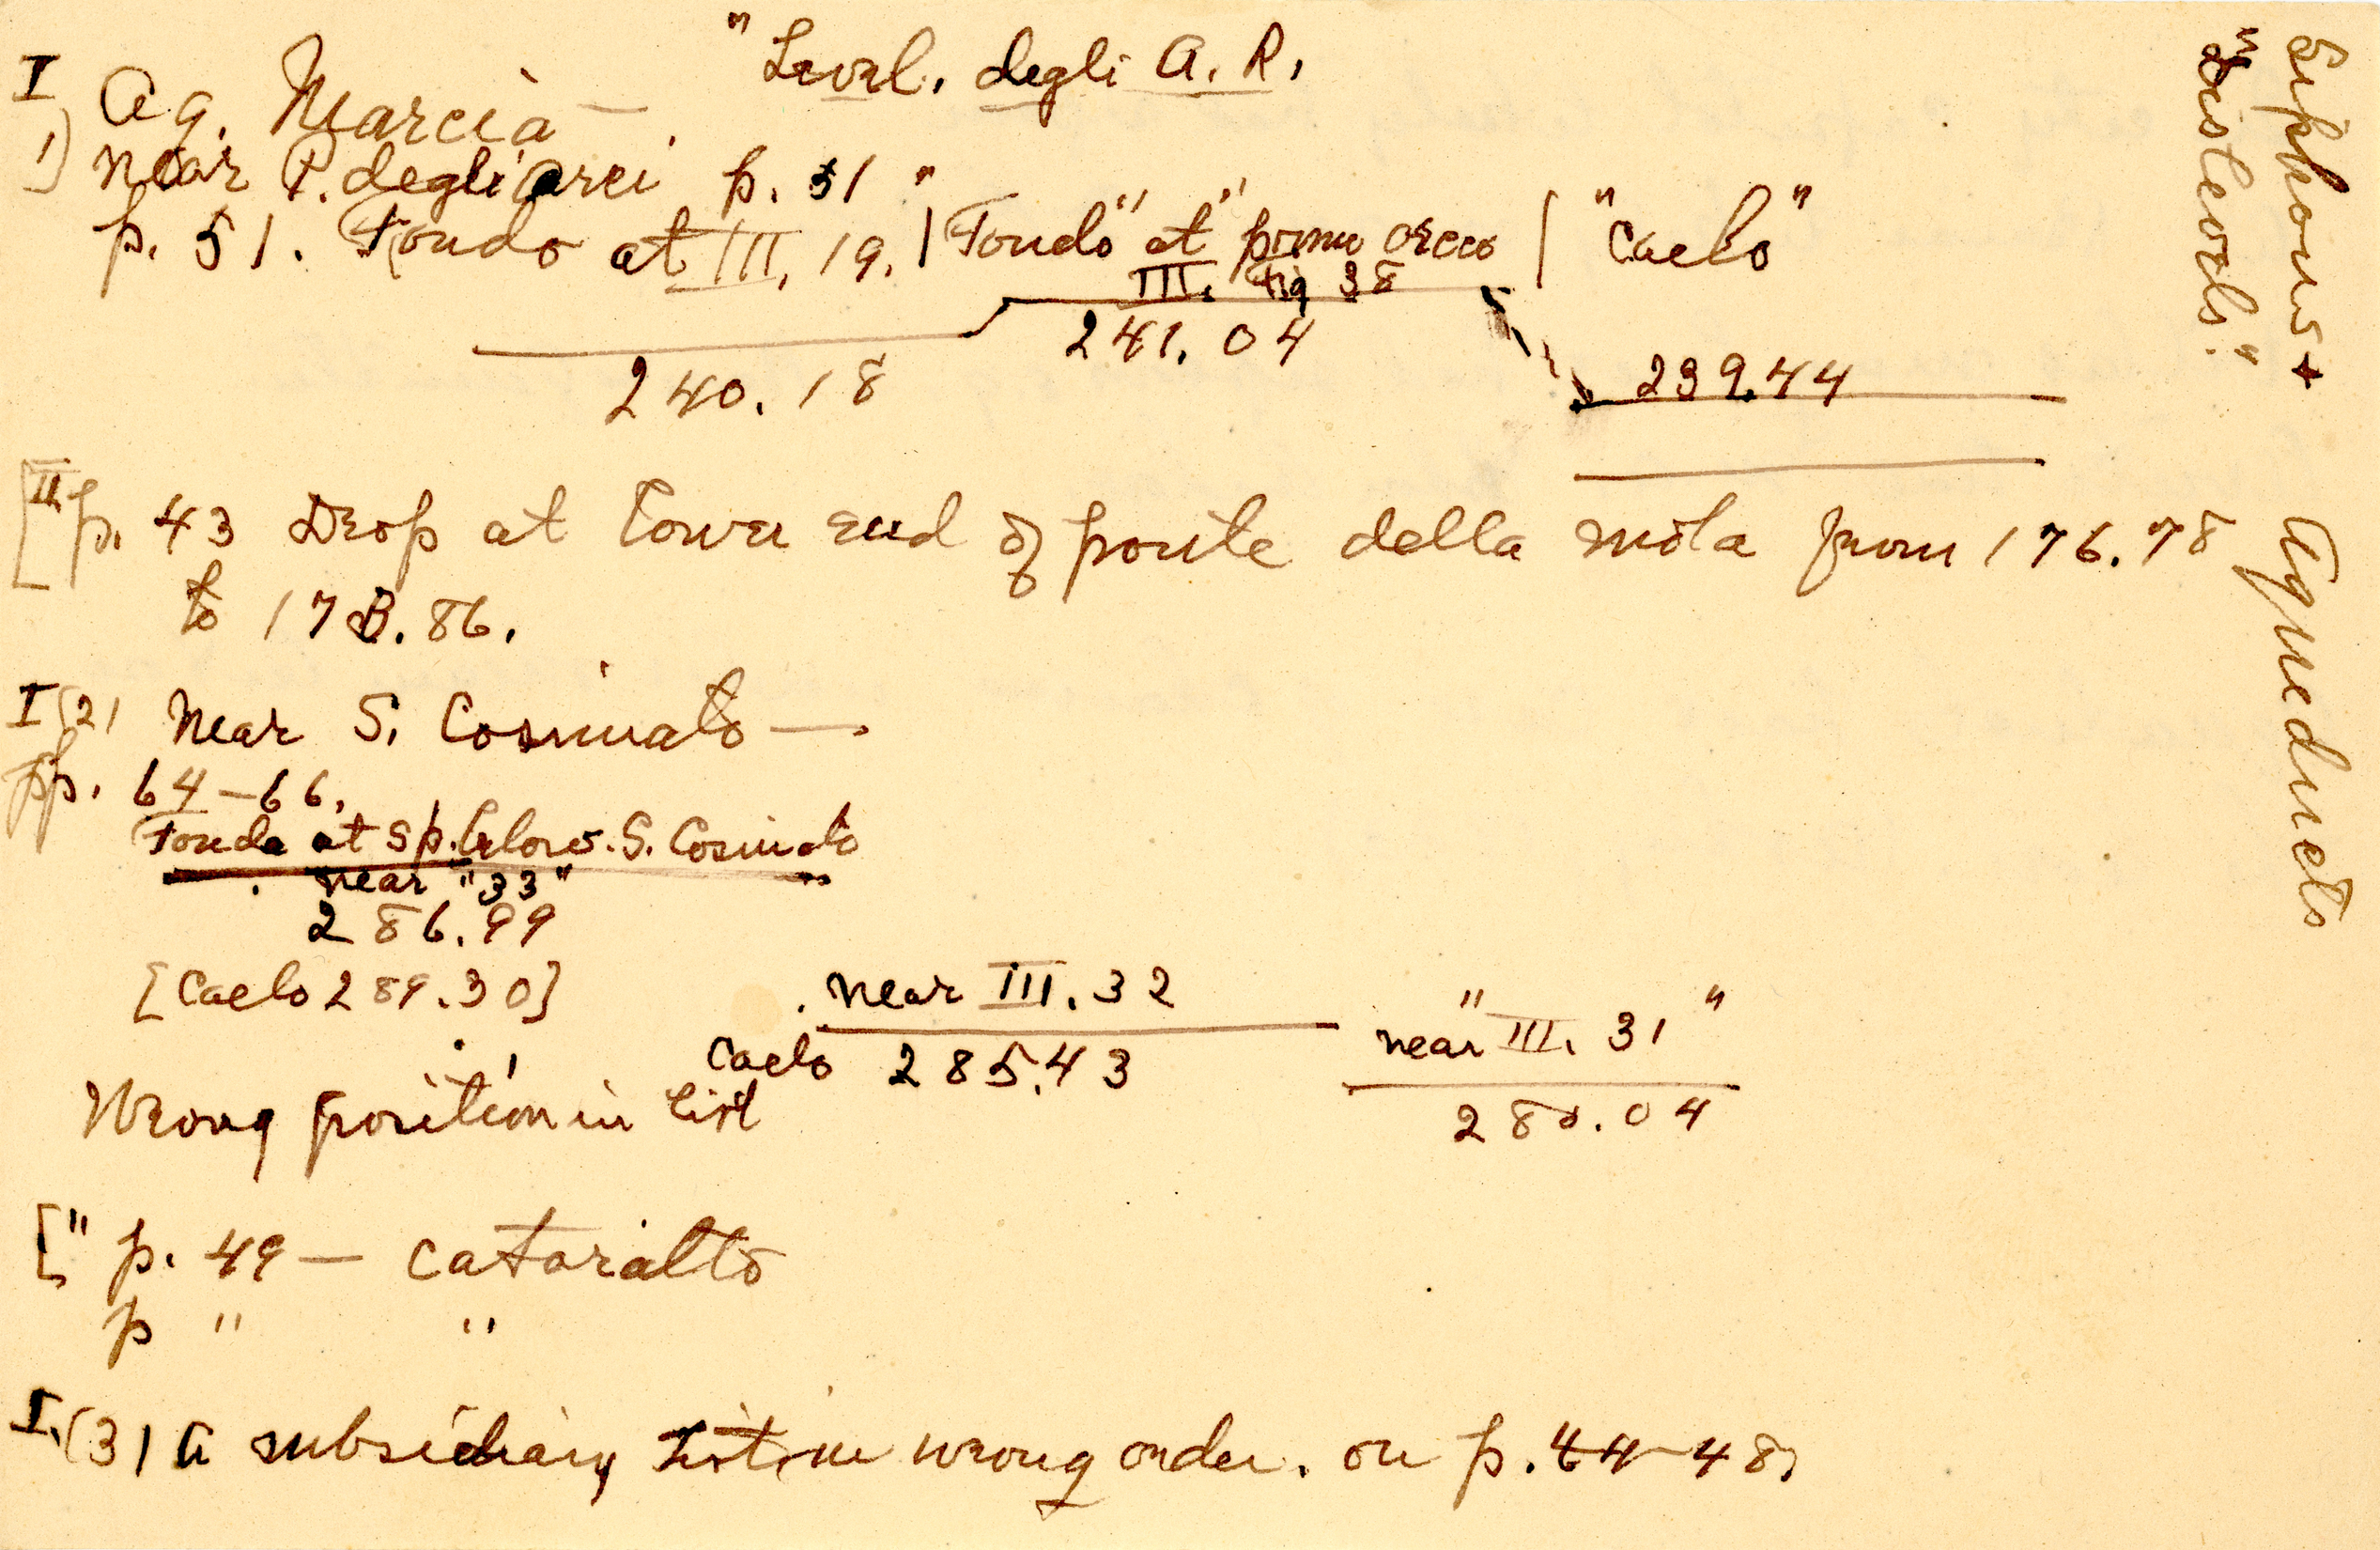 "Level. degli A. R.
I Aq. Marcia —
1) near P. degli arci p. 51 "
p. 51. Fondo at III, 19. | "Fondo" at "primo arco | "Caelo"
III. Fig 38
241.04
240.18
239.44
[II p. 43 Drop at lower end of ponte della mola from 176.78
to 173.86.
I (2) Near S. Cosimato —.
pp. 64–66.
Fondo at sp. below. S. Cosimato
near "33"
286.99
[Caelo 289.30]
near III. 32
Caelo 285.43
near "III. 31"
280.04
Wrong position in list
[" p. 49 — cataratto
p " "
I. (3) A subsidiary list in wrong order. on p. 44–48.
Siphons +
"Disteods."
Aqueducts